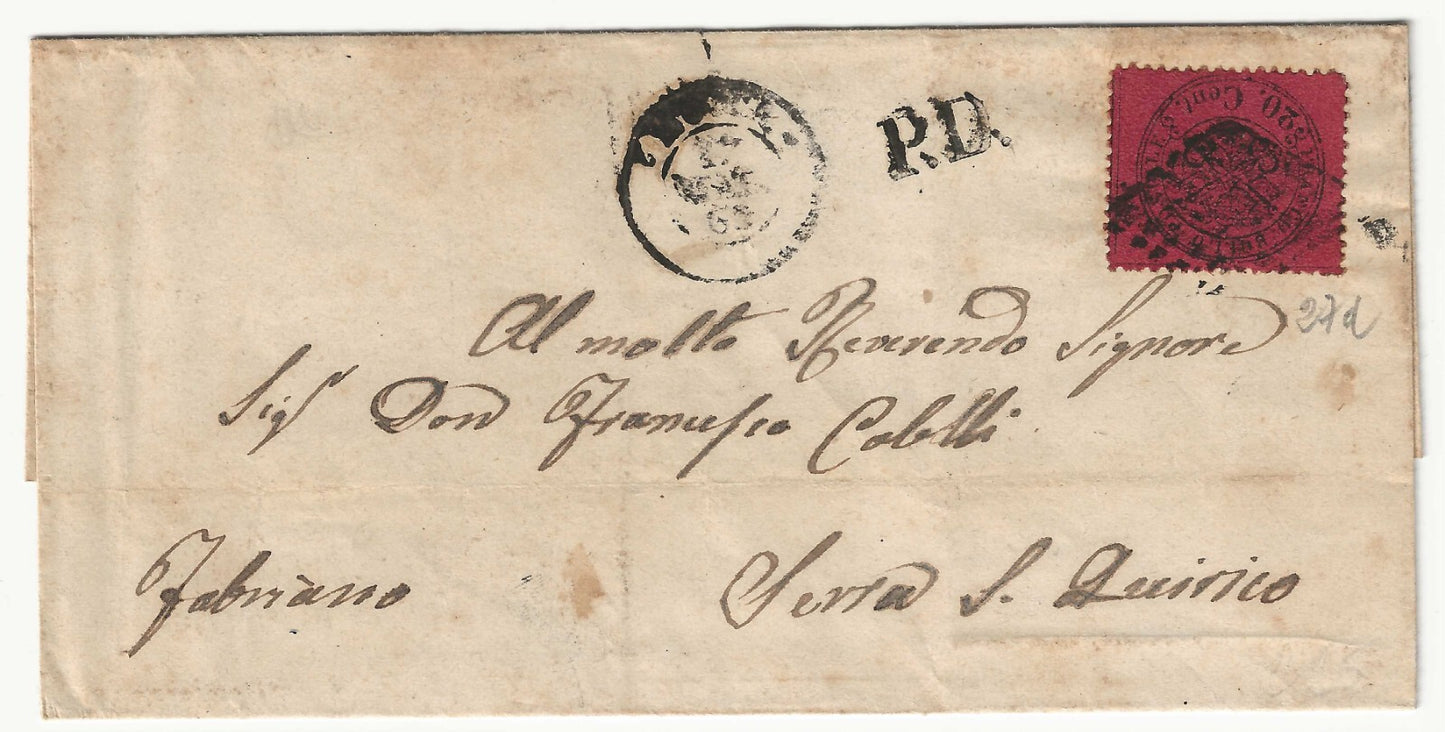 P.D.
20. Cent.
Al molto Reverendo Signore
27d
Sigr Don Francesco Cobelli
Fabriano
Serra S. Quirico